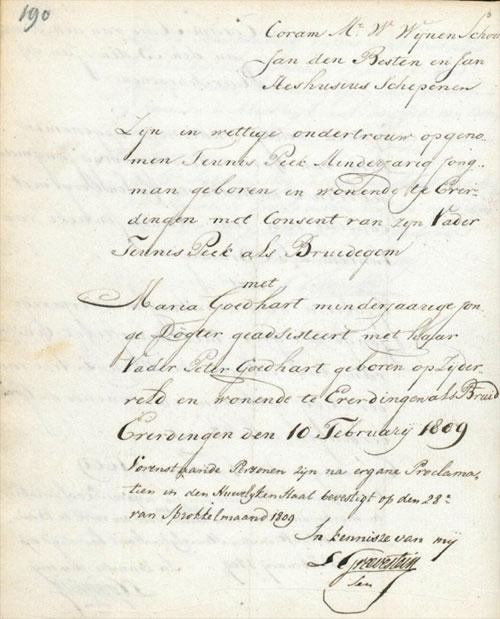 190
Coram Mr. Wm. Wijnen Schou
Jan den Besten en Jan
Heshusius Schepenen
Zijn in wettige ondertrouw opgeno-
men Teunis Peek Minderjarig jong-
man geboren en wonende te Ever-
dingen met Consent van zijn Vader
Teunis Peek als Bruidegem
met
Maria Goedhart minderjaarige jon-
ge Dogter geadsisteert met haar
Vader Peter Goedhart geboren op Zijder-
veld en wonende te Everdingen als Bruid
Everdingen den 10 Februarij 1809
Vorenstaande Personen zijn na ergane Proclama-
tien in den Huwelyken Staat bevestigt op den 28e
van Sprokkelmaand 1809
In kennisse van mij
Grevestein